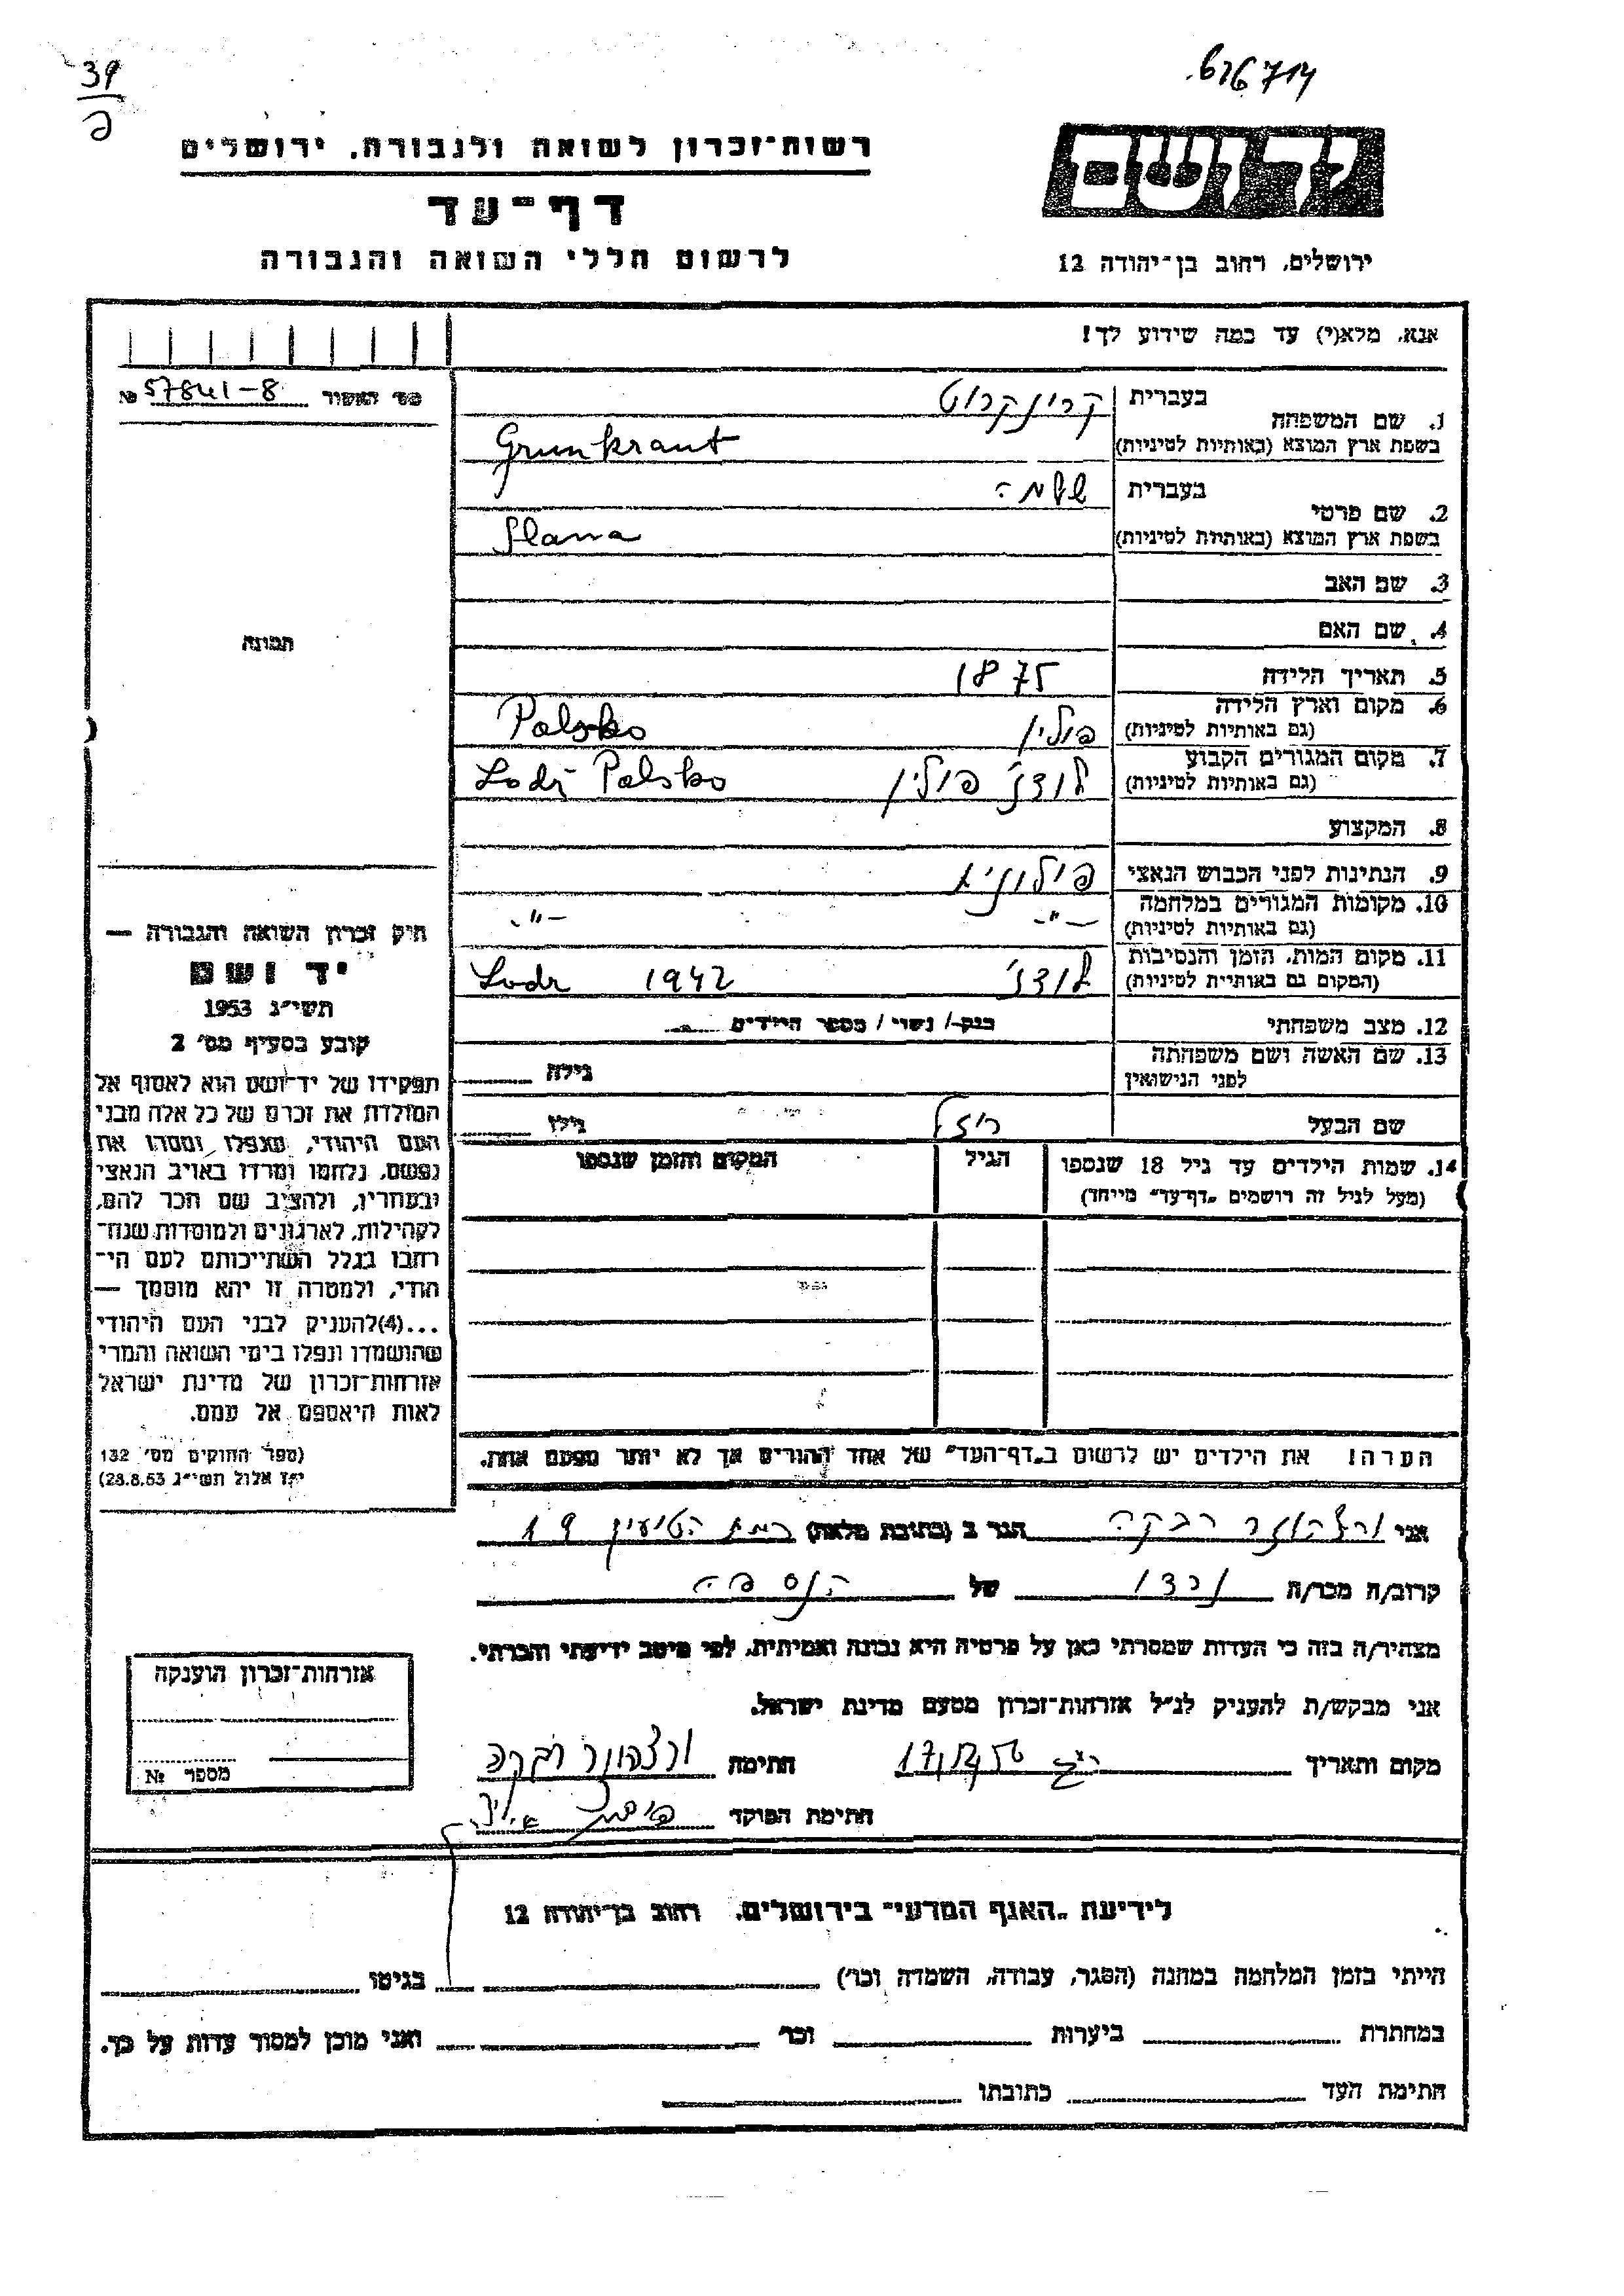 39
626714
יד ושם
רשות־זכרון לשואה ולגבורה, ירושלים
דף־עד
לרשום חללי השואה והגבורה
ירושלים, רחוב בן־יהודה 12
אנא, מלא(י) עד כמה שידוע לך!
מס׳ האשור № 57841-8
1. שם המשפחה
בעברית
בשפת ארץ המוצא (באותיות לטיניות) Grunkraut
2. שם פרטי
בעברית
בשפת ארץ המוצא (באותיות לטיניות)
3. שם האב
4. שם האם
תמונה
5. תאריך הלידה 1875
6. מקום וארץ הלידה
(גם באותיות לטיניות) פולין Polsko
7. מקום המגורים הקבוע
(גם באותיות לטיניות) לודז׳ פולין Lodz Polsko
8. המקצוע
9. הנתינות לפני הכבוש הנאצי
10. מקומות המגורים במלחמה
(גם באותיות לטיניות) -"- -"-
11. מקום המות, הזמן והנסיבות
(המקום גם באותיות לטיניות) לודז׳ 1942 Lodz
12. מצב משפחתי רווק/ נשוי/ מספר הילדים
13. שם האשה ושם משפחתה
לפני הנישואין גילה
שם הבעל גילו
14. שמות הילדים עד גיל 18 שנספו
(מעל לגיל זה רושמים "דף־עד" מיוחד)
הגיל
המקום והזמן שנספו
הערה! את הילדים יש לרשום ב"דף־העד" של אחד ההורים אך לא יותר מפעם אחת.
חוק זכרון השואה והגבורה —
יד ושם
תשי״ג 1953
קובע בסעיף מס׳ 2
תפקידו של יד־ושם הוא לאסוף אל
המולדת את זכרם של כל אלה מבני
העם היהודי, שנפלו ומסרו את
נפשם, נלחמו ומרדו באויב הנאצי
ובעוזריו, ולהציב שם וזכר להם,
לקהילות, לארגונים ולמוסדות שנח־
רבו בגלל השתייכותם לעם הי־
הודי, ולמטרה זו יהא מוסמך —
...(4)להעניק לבני העם היהודי
שהושמדו ונפלו בימי השואה והמרי
אזרחות־זכרון של מדינת ישראל
לאות היאספם אל עמם.
(ספר החוקים מס׳ 132
י״ז אלול תשי״ג 28.8.53)
אני רבקה הגר ב (כתובת מלאה)
קרוב/ה מכר/ה של
מצהיר/ה בזה כי העדות שמסרתי כאן על פרטיה היא נכונה ואמיתית, לפי מיטב ידיעתי והכרתי.
אני מבקש/ת להעניק לנ״ל אזרחות־זכרון מטעם מדינת ישראל.
מקום ותאריך חתימה רבקה
חתימת הפוקד
אזרחות־זכרון הוענקה
מספר №
לידיעת "האגף המדעי" בירושלים, רחוב בן־יהודה 12
הייתי בזמן המלחמה במחנה (הסגר, עבודה, השמדה וכו׳) בגיטו
במחתרת ביערות וכו׳ ואני מוכן למסור עדות על כך.
חתימת העד כתובתו